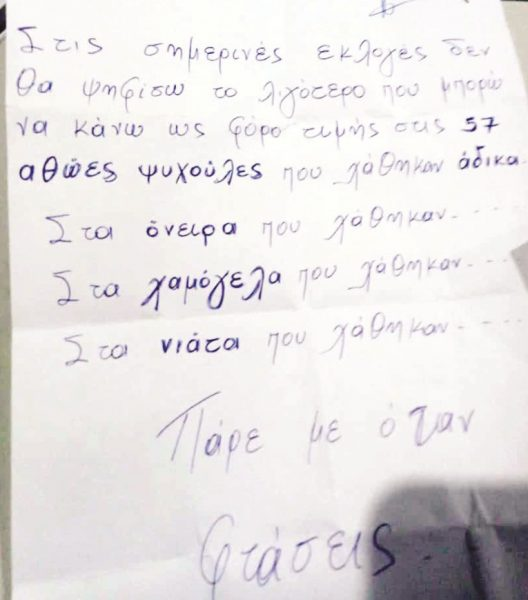 Στις σημερινές εκλογές δεν
θα ψηφίσω το λιγότερο που μπορώ
να κάνω ως φόρο τιμής στις 57
αθώες ψυχούλες που χάθηκαν άδικα.
Στα όνειρα που χάθηκαν.....
Στα χαμόγελα που χάθηκαν.....
Στα νιάτα που χάθηκαν.....
Πάρε με όταν
φτάσεις.